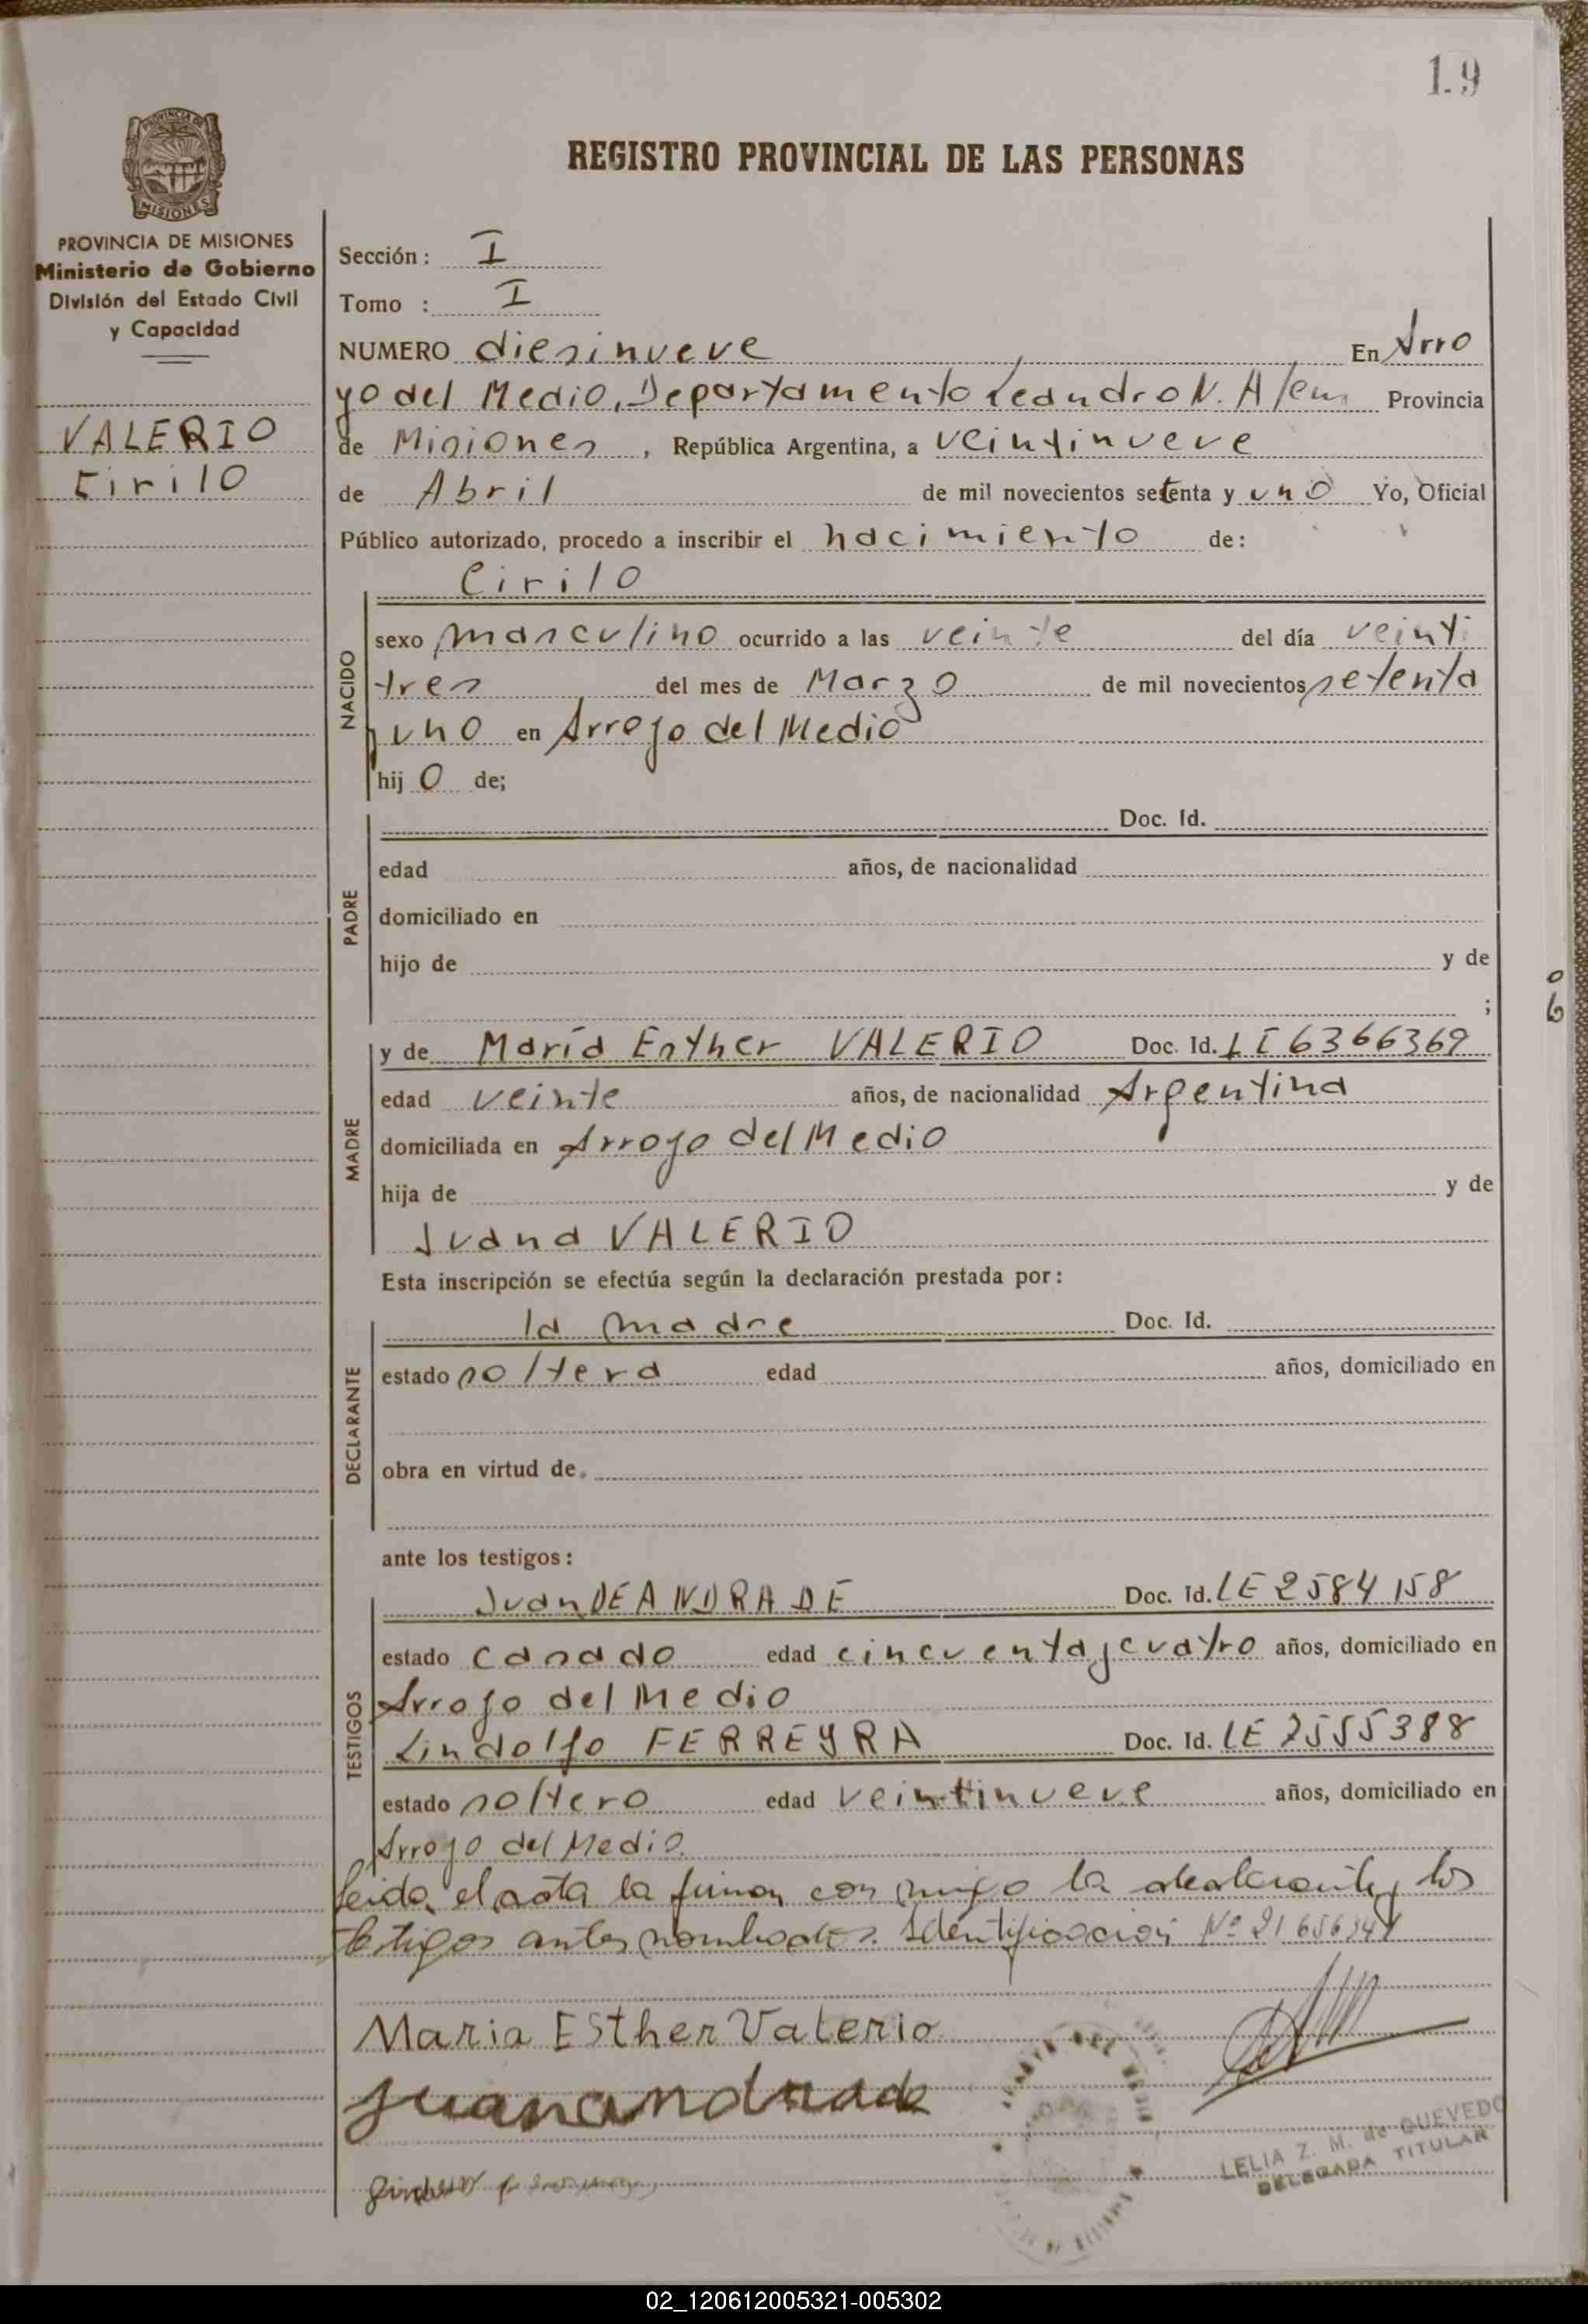 19
REGISTRO PROVINCIAL DE LAS PERSONAS
PROVINCIA DE MISIONES
MISIONES
PROVINCIA DE MISIONES
Ministerio de Gobierno
División del Estado Civil
y Capacidad
VALERIO
Cirilo
Sección: I
Tomo : I
NUMERO diesinueve En Arro
yo del Medio, Departamento Leandro N. Alem Provincia
de Misiones, República Argentina, a veintinueve
de Abril de mil novecientos setenta y uno Yo, Oficial
Público autorizado, procedo a inscribir el nacimiento de:
Cirilo
NACIDO
sexo masculino ocurrido a las veinte del día veinti
tres del mes de Marzo de mil novecientos setenta
y uno en Arroyo del Medio
hijo de;
PADRE
Doc. Id.
edad años, de nacionalidad
domiciliado en
hijo de y de
;
MADRE
y de María Esther VALERIO Doc. Id. LC 6366369
edad veinte años, de nacionalidad Argentina
domiciliada en Arroyo del Medio
hija de y de
Juana VALERIO
Esta inscripción se efectúa según la declaración prestada por:
DECLARANTE
la madre Doc. Id.
estado soltera edad años, domiciliado en
obra en virtud de
ante los testigos:
TESTIGOS
Juan DE ANDRADE Doc. Id. LE 2584158
estado casado edad cincuenta y cuatro años, domiciliado en
Arroyo del Medio
Lindolfo FERREYRA Doc. Id. LE 7555388
estado soltero edad veintinueve años, domiciliado en
Arroyo del Medio.
leida el acta la firman con migo la declarante y los
testigos antes nombrados. Identificacion Nº 21656341
Maria Esther Valerio
Juan andrade
LELIA Z. M. de QUEVEDO
DELEGADA TITULAR
02_120612005321-005302